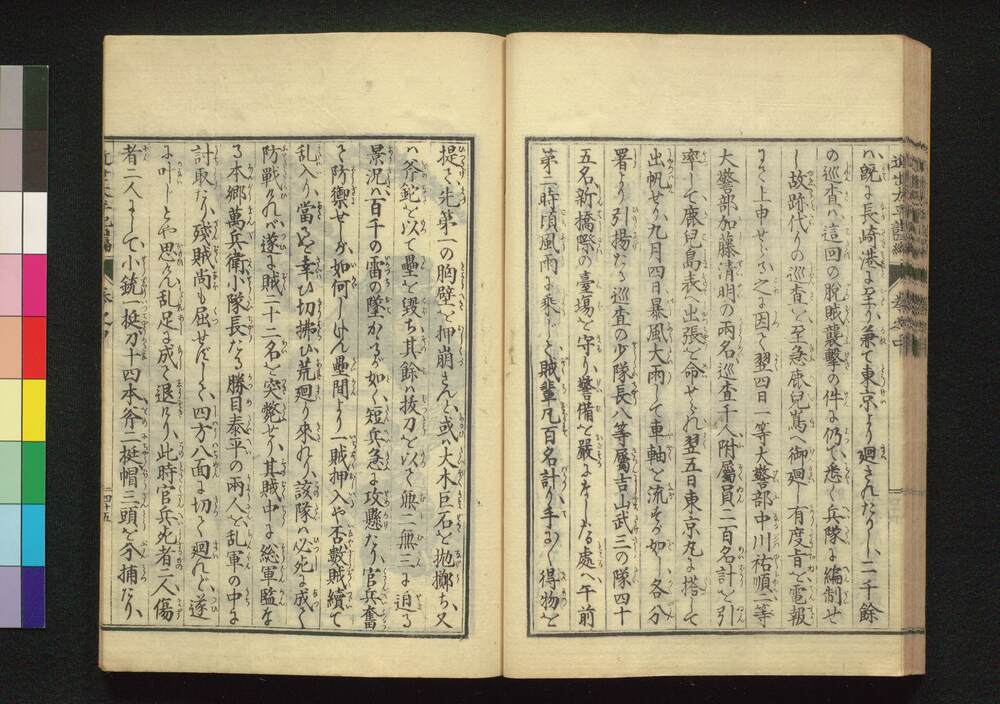 ハ、既に長崎港に至り、兼て東京より廻されたりし、二千餘
の巡査ハ、這回の脱賊襲撃の件に仍て、悉く兵隊に編制せ
し故、跡代りの巡査を至急鹿兒島へ御廻し有度旨を電報
にて上申せしかバ之に因て、翌四日一等大警部中川祐順二等
大警部加藤清明の両名巡査千人附屬員二百名計を引
率して鹿兒島表へ出張を命せられ翌五日東京丸に搭して
出帆せり九月四日暴風大雨して車軸を流すが如し各分
署より引揚たる巡査の少隊長八等屬吉山武三の隊四十
五名新橋際の臺場を守り、警備を嚴になしゐる處へ午前
第二時頃風雨に乘じて賊輩凡百名計り、手に〳〵得物を
提て、先第一の胸壁を押崩さんと、或ハ大木巨石を抛擲ち、又
ハ斧鉈を以て壘を毀ち、其餘ハ抜刀を以て無二無三に迫る
景況ハ百千の雷の墜かゝるが如く、短兵急に攻懸たり、官兵奮
て防禦せしが如何しけん壘間より一賊押入や否數賊續て
乱入り、當るを幸ひ切拂ひ荒廻り來れり、該隊ハ必死に成て
防戰けれバ遂に賊二十二名を突斃せり、其賊中に総軍監な
る本郷萬兵衛小隊長たる勝目泰平の兩人を乱軍の中に
討取たり、殘賊尚も屈せずして、四方八面に切て廻れど、遂
に叶じとや思けん乱足に成て退けり、此時官兵死者二人傷
者二人にして、小銃一挺刀十四本斧二挺帽三頭を分捕たり、
二四十五